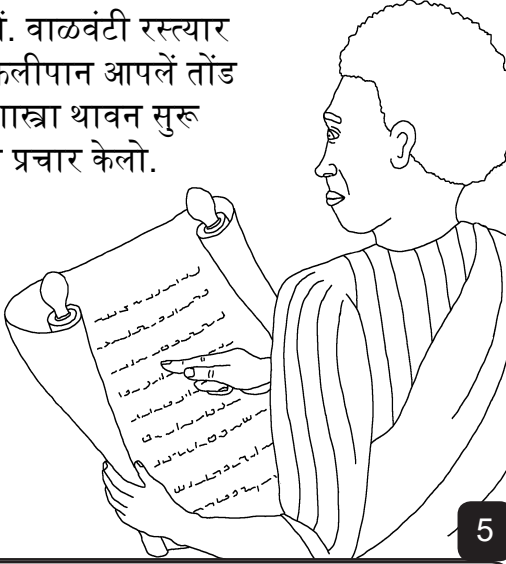 वाळवंटी रस्त्यार
आपलें तोंड
थावन सुरू
प्रचार केलो.
5